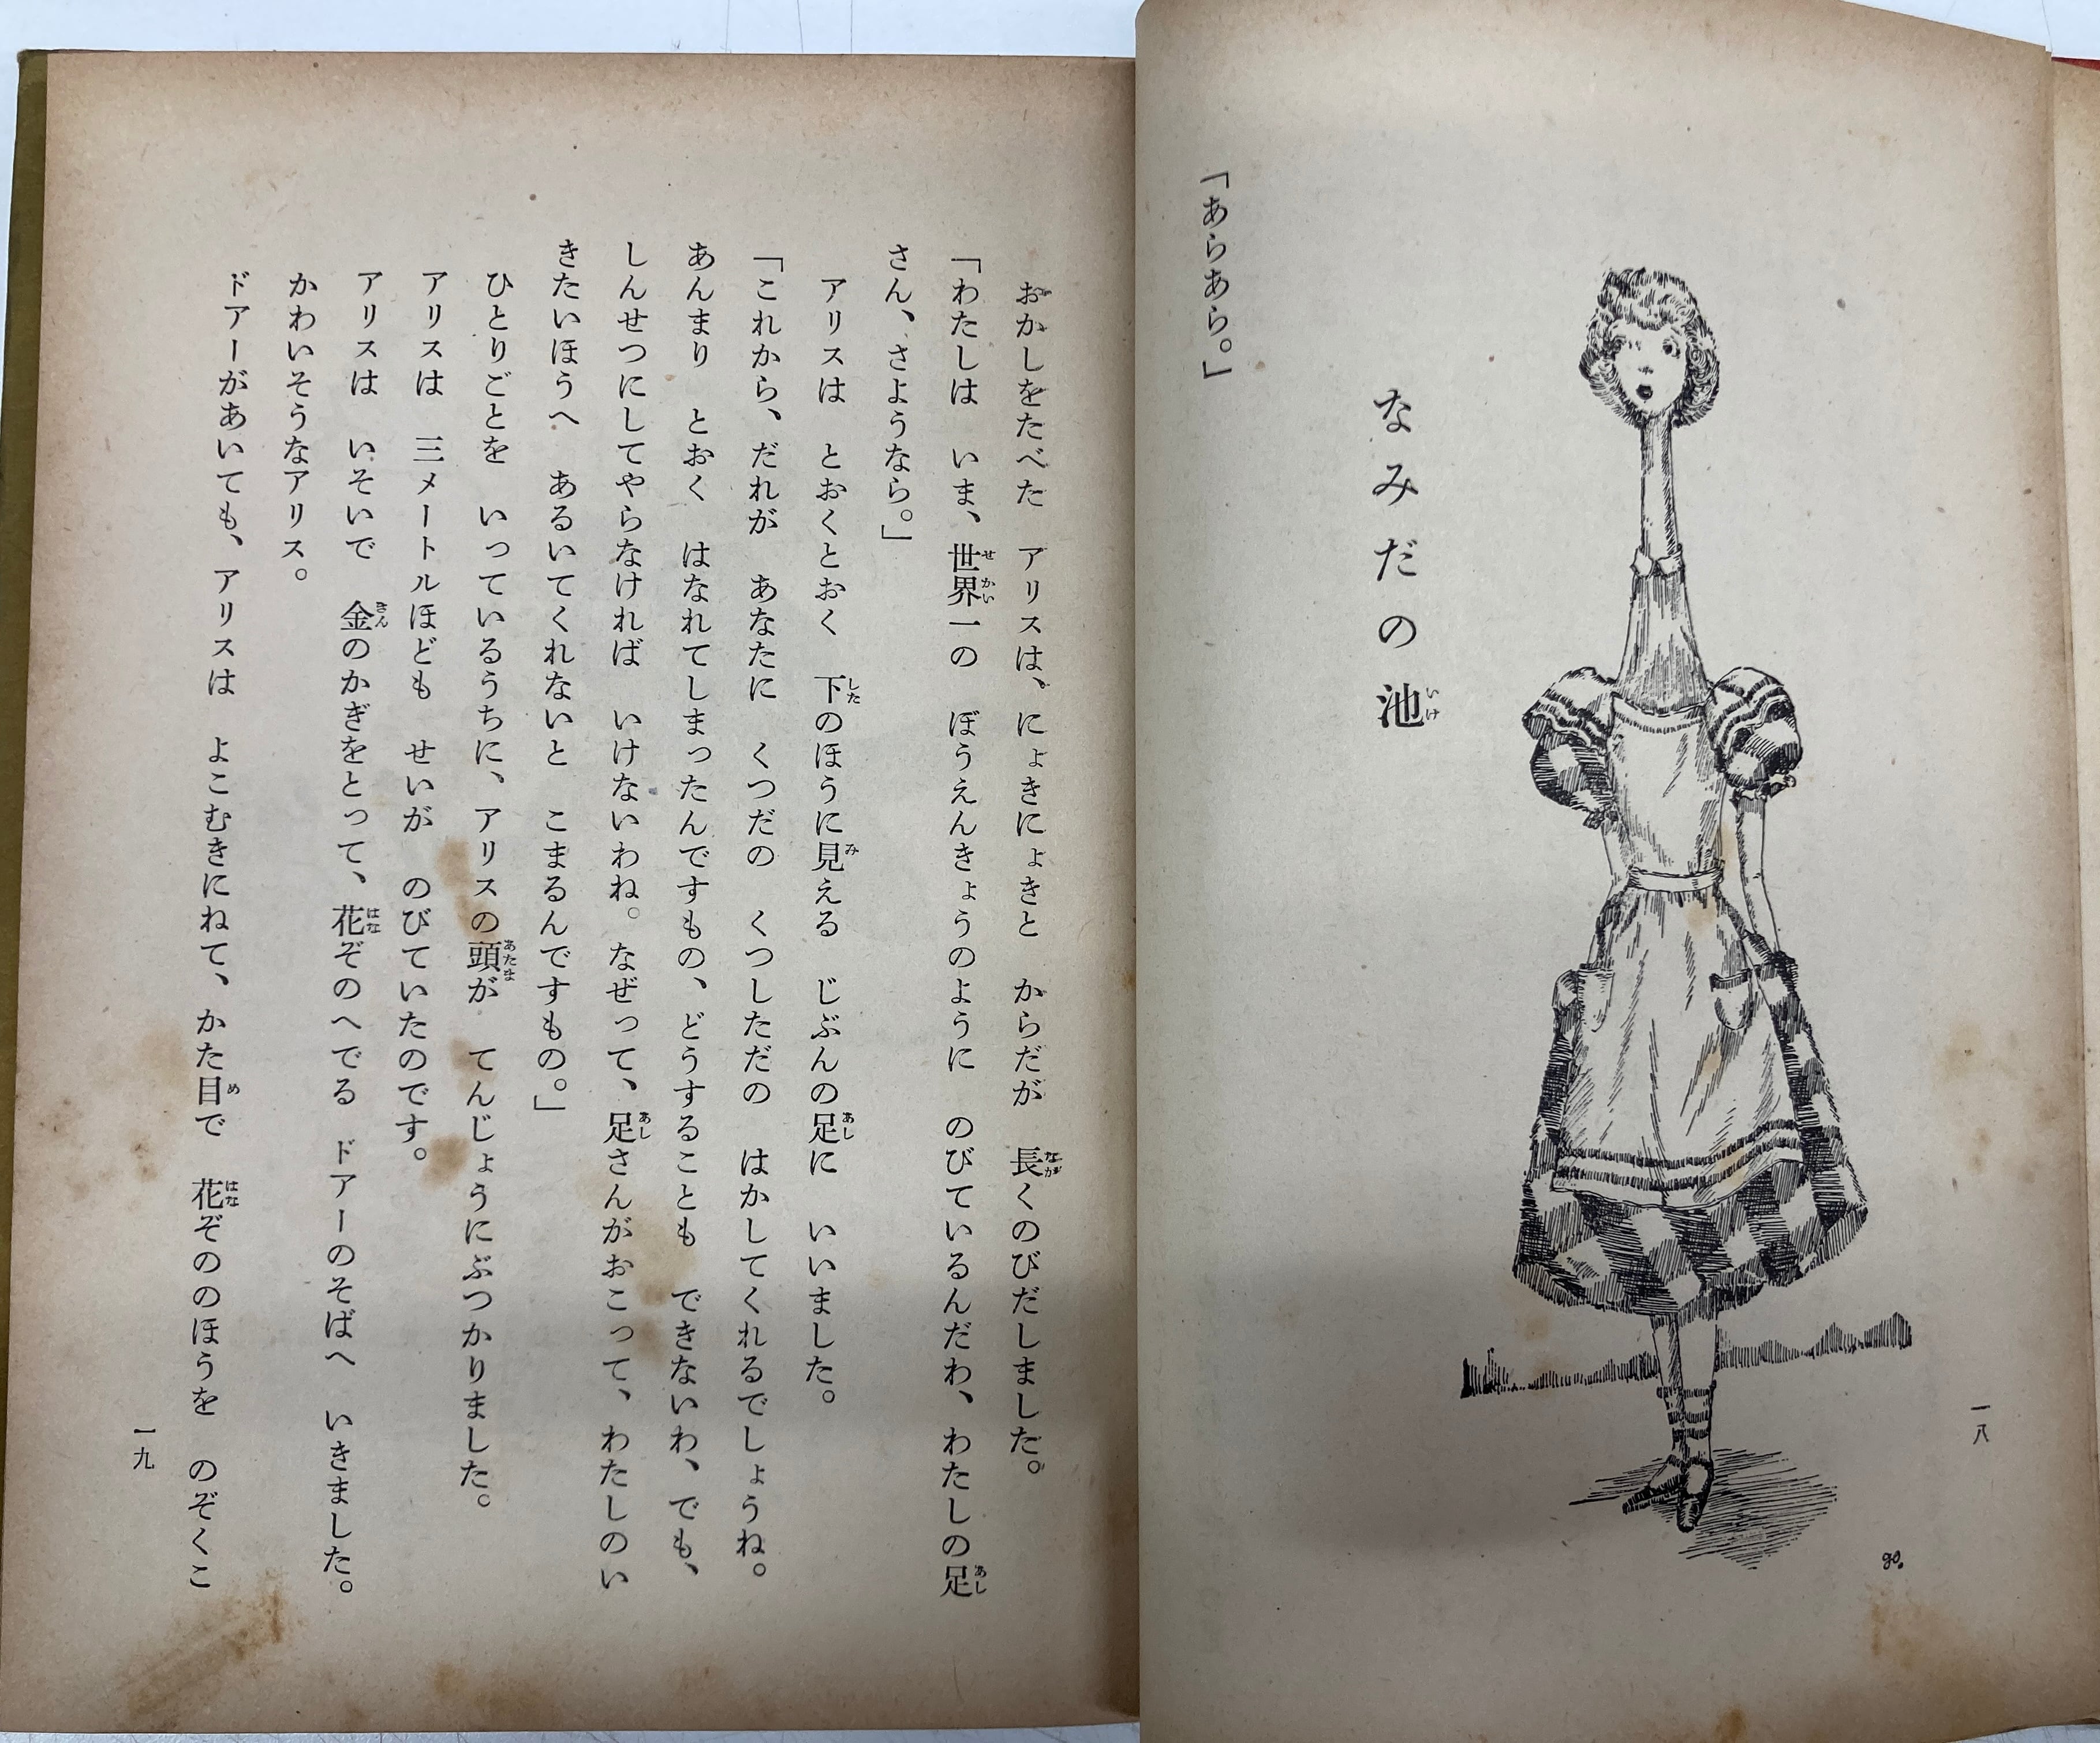 なみだの池
いけ
「あらあら。」
一八
go.
おかしをたべた　アリスは、にょきにょきと　からだが　長くのびだしました。
なが
「わたしは　いま、世界一の　ぼうえんきょうのように　のびているんだわ、わたしの足
せかい
あし
さん、さようなら。」
アリスは　とおくとおく　下のほうに見える　じぶんの足に　いいました。
した
み
あし
「これから、だれが　あなたに　くつだの　くつしただの　はかしてくれるでしょうね。
あんまり　とおく　はなれてしまったんですもの、どうすることも　できないわ、でも、
しんせつにしてやらなければ　いけないわね。なぜって、足さんがおこって、わたしのい
あし
きたいほうへ　あるいてくれないと　こまるんですもの。」
ひとりごとを　いっているうちに、アリスの頭が　てんじょうにぶつかりました。
あたま
アリスは　三メートルほども　せいが　のびていたのです。
アリスは　いそいで　金のかぎをとって、花ぞのへでる　ドアーのそばへ　いきました。
きん
はな
かわいそうなアリス。
ドアーがあいても、アリスは　よこむきにねて、かた目で　花ぞののほうを　のぞくこ
め
はな
一九